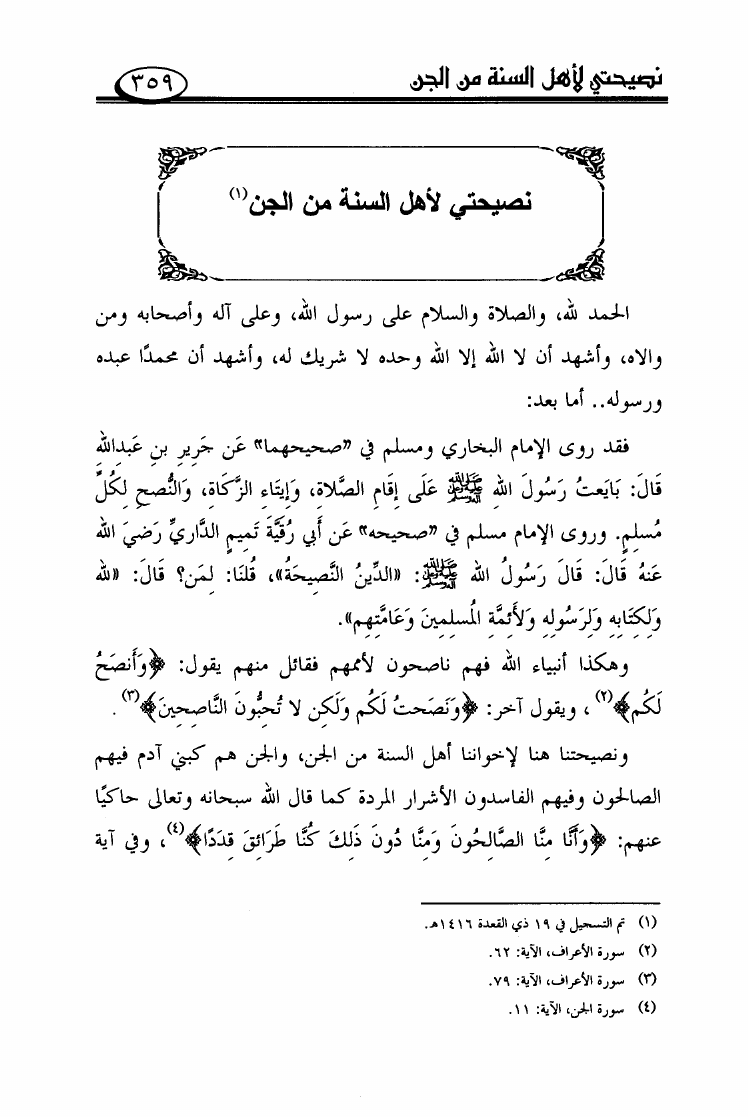 نصيحتي لأهل السنة من الجن
٣٥٩
نصيحتي لأهل السنة من الجن(١)
الحمد لله، والصلاة والسلام على رسول الله، وعلى آله وأصحابه ومن
والاه، وأشهد أن لا الله إلا الله وحده لا شريك له، وأشهد أن محمدًا عبده
ورسوله.. أما بعد:
فقد روى الإمام البخاري ومسلم في «صحيحهما» عَن جَرِيرِ بنِ عَبدِالله
قَالَ: بَايَعتُ رَسُولَ الله ﷺ عَلَى إِقَامِ الصَّلاةِ، وَإِيتَاءِ الزَّكَاةِ، وَالنُّصحِ لِكُلِّ
مُسلِمٍ. وروى الإمام مسلم في «صحيحه» عَن أَبِي رُقَيَّةَ تَمِيمٍ الدَّارِيِّ رَضِيَ الله
عَنهُ قَالَ: قَالَ رَسُولُ الله ﷺ: «الدِّينُ النَّصِيحَةُ»، قُلنَا: لِمَن؟ قَالَ: «لله
وَلِكِتَابِهِ وَلِرَسُولِهِ وَلأَئِمَّةِ المُسلِمِينَ وَعَامَّتِهِم».
وهكذا أنبياء الله فهم ناصحون لأممهم فقائل منهم يقول: ﴿وَأَنصَحُ
لَكُم﴾(٢)، ويقول آخر: ﴿وَنَصَحتُ لَكُم وَلَكِن لا تُحِبُّونَ النَّاصِحِينَ﴾(٣).
ونصيحتنا هنا لإخواننا أهل السنة من الجن، والجن هم كبني آدم فيهم
الصالحون وفيهم الفاسدون الأشرار المردة كما قال الله سبحانه وتعالى حاكيًا
عنهم: ﴿وَأَنَّا مِنَّا الصَّالِحُونَ وَمِنَّا دُونَ ذَلِكَ كُنَّا طَرَائِقَ قِدَدًا﴾(٤)، وفي آية
(١) تم التسجيل في ١٩ ذي القعدة ١٤١٦هـ.
(٢) سورة الأعراف، الآية: ٦٢.
(٣) سورة الأعراف، الآية: ٧٩.
(٤) سورة الجن، الآية: ١١.